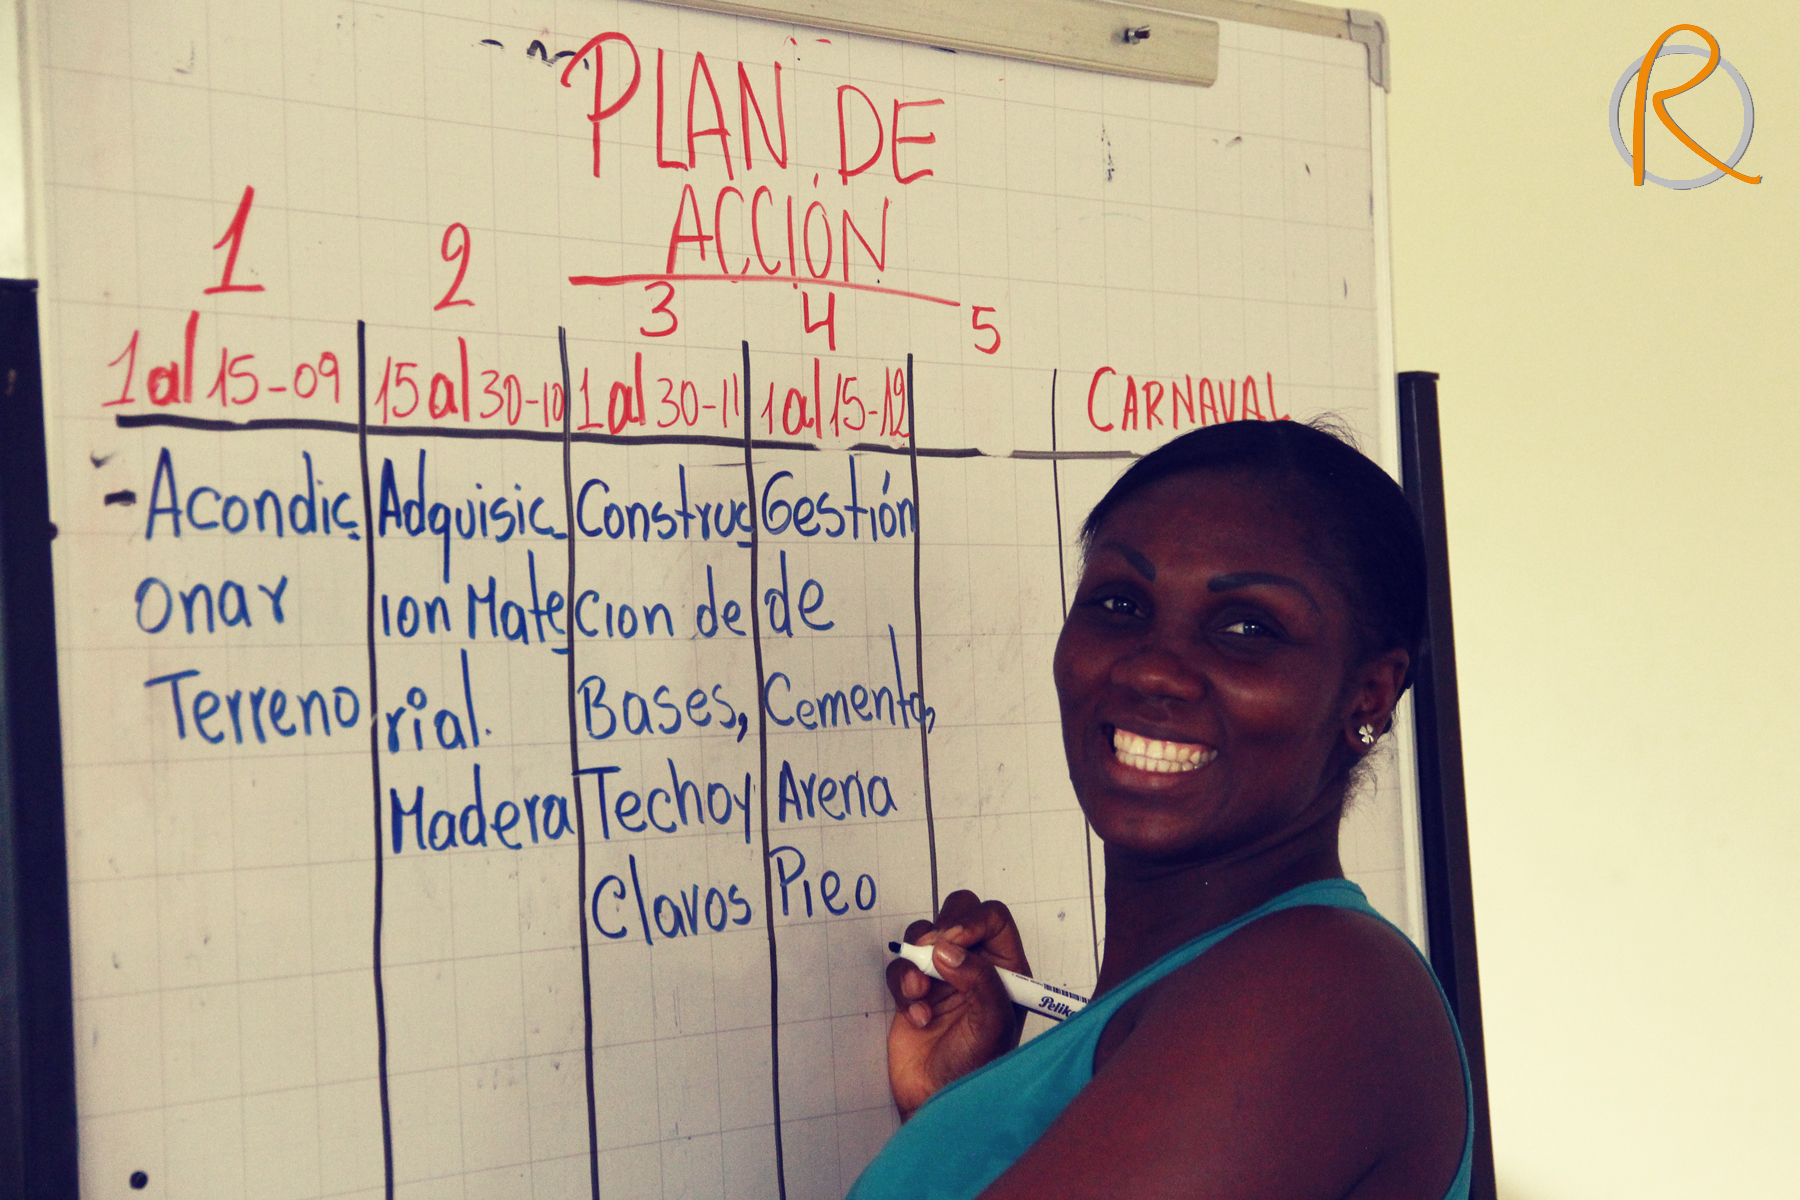 PLAN DE
ACCIÓN
1
2
3
4
5
1 al 15-09
15 al 30-10
1 al 30-11
1 al 15-12
CARNAVAL
- Acondic
onar
Terreno
Adquisic
ion Mate
rial.
Madera
Construc
cion de
Bases,
Techo y
Clavos
Gestión
de
Cemento,
Arena
Pieo
R